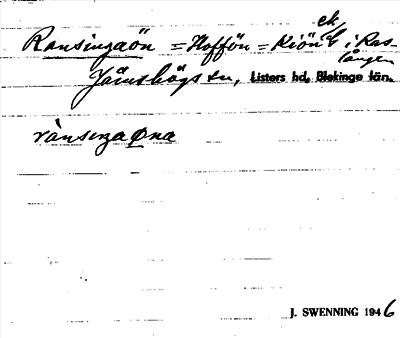 Ransingaön = Hoffön = Kiön ek i Ras-
lången
Jämshögs sn, Listers hd, Blekinge län.
rànsiŋaøna
J. SWENNING 1946